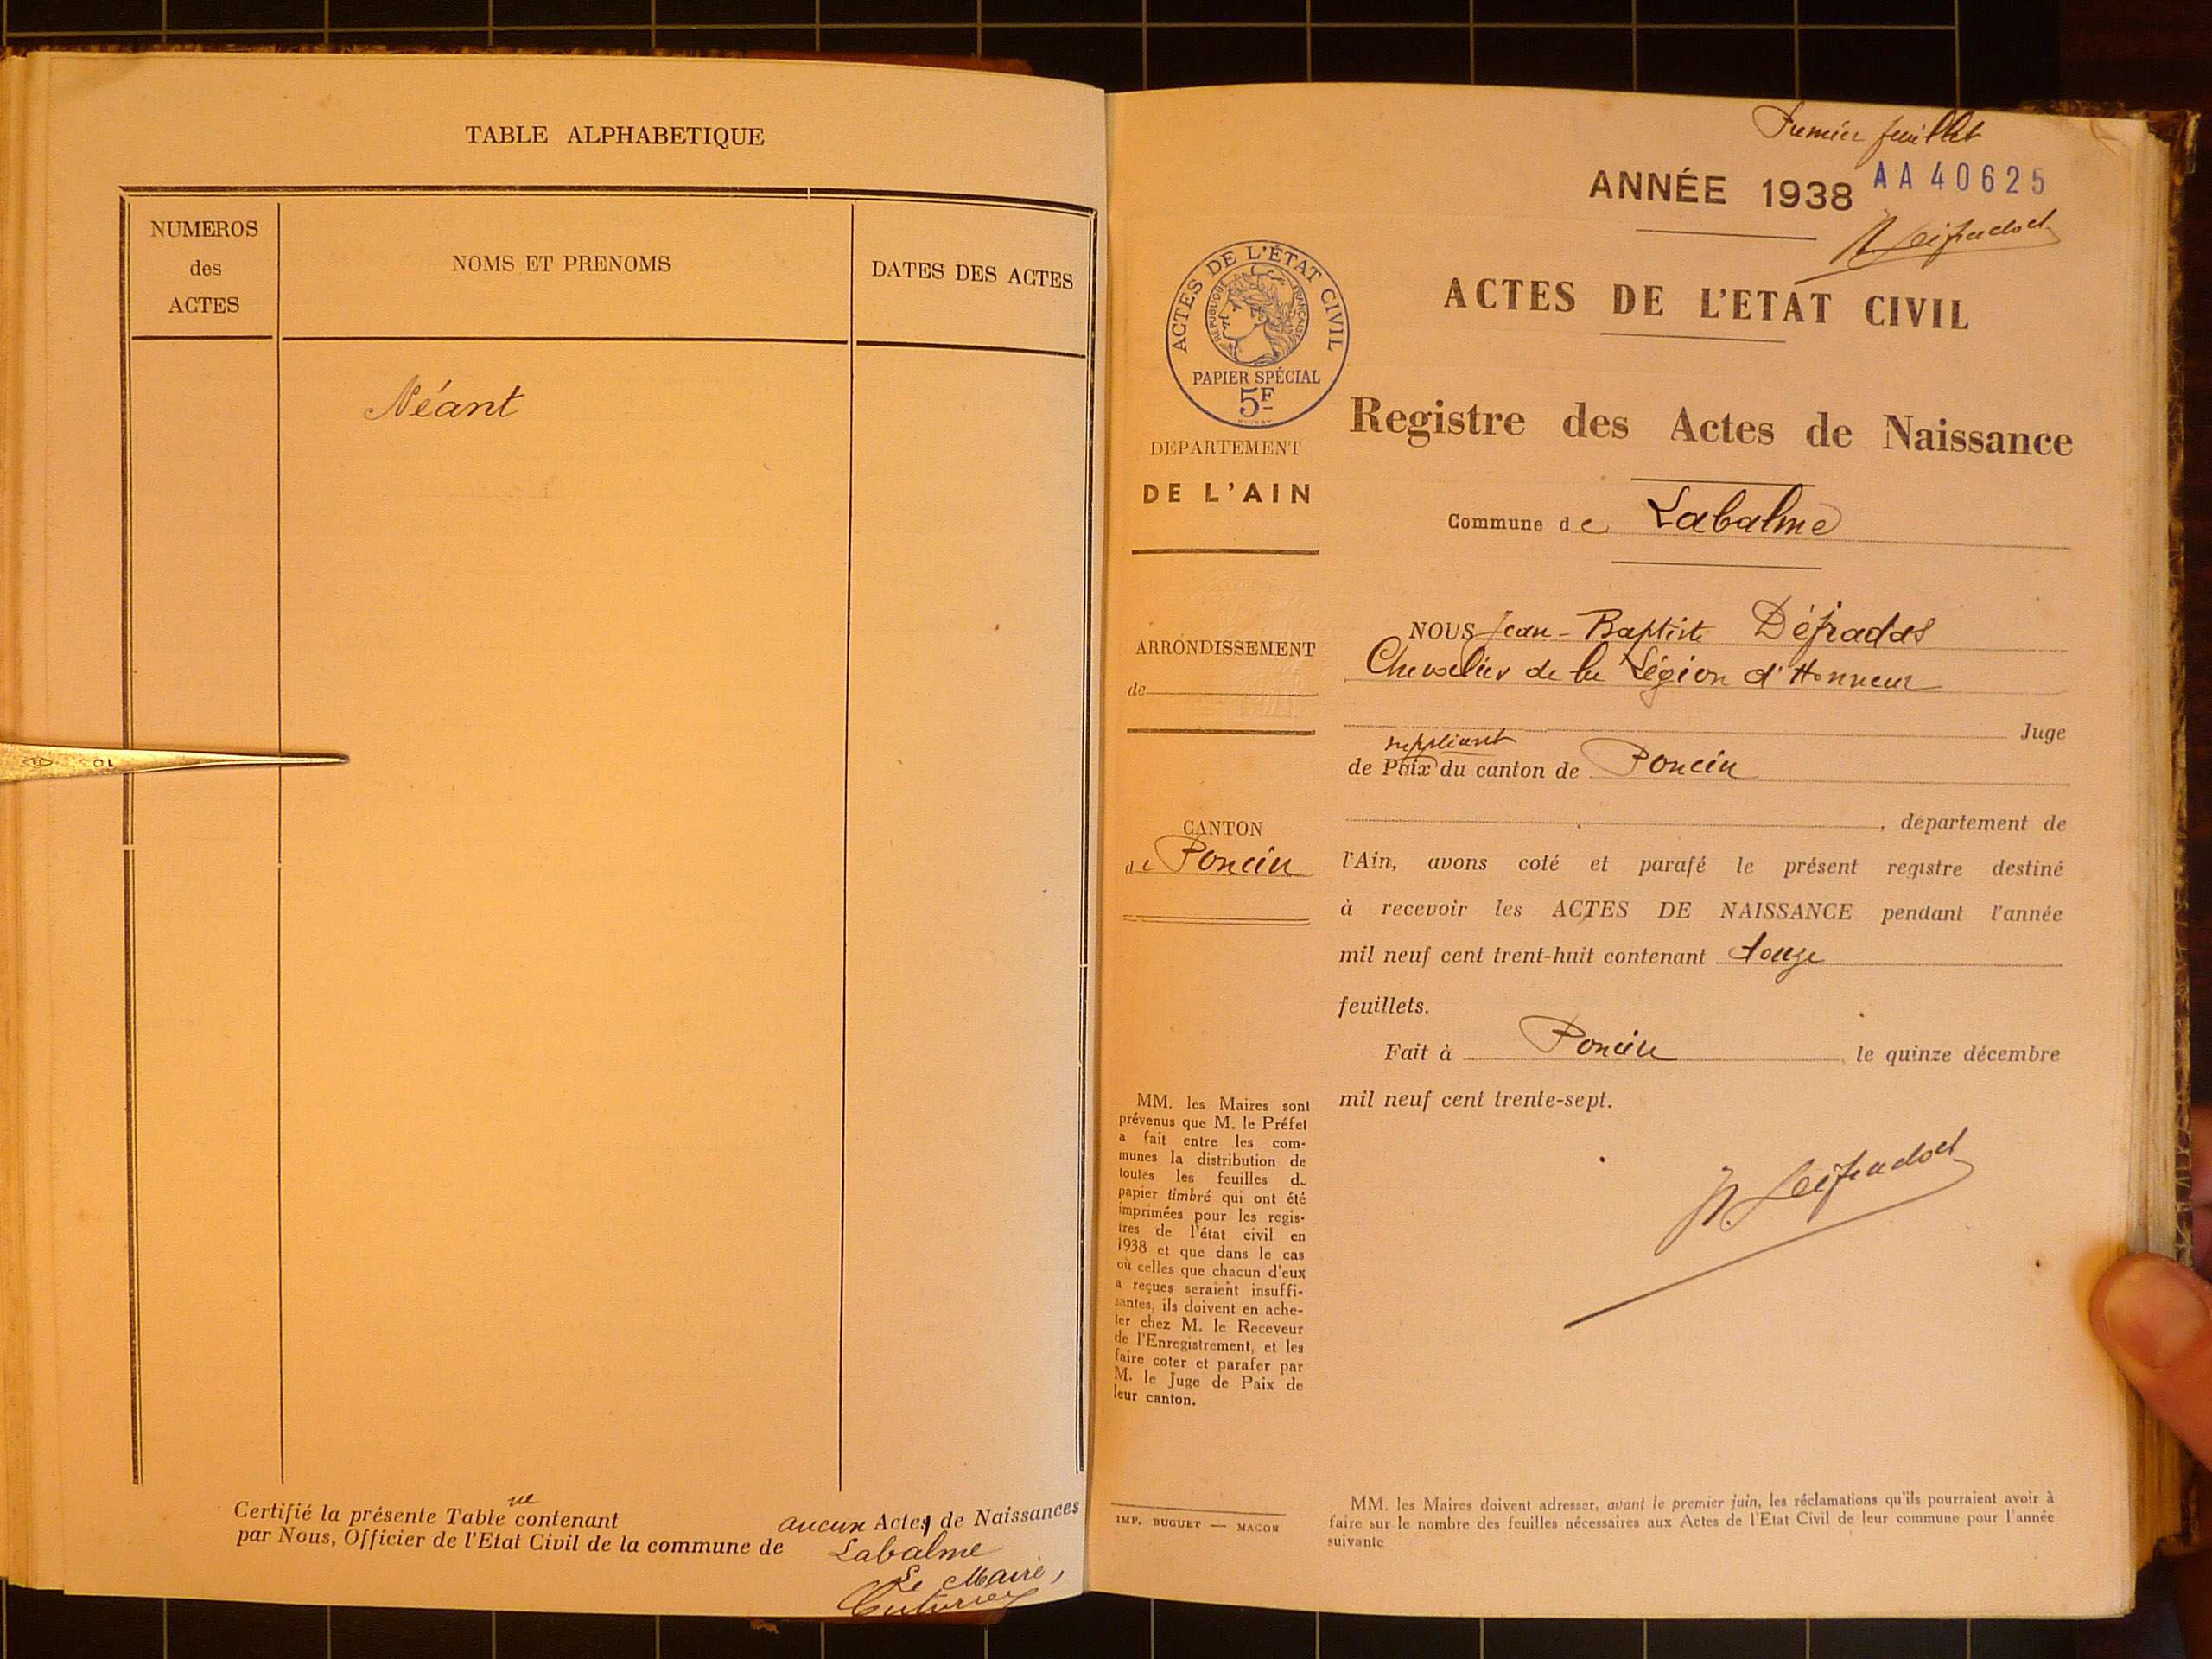 TABLE ALPHABETIQUE
NUMEROS
des
ACTES
NOMS ET PRENOMS
DATES DES ACTES
Néant
10
Certifié la présente Table ne contenant aucun Acte de Naissances
par Nous, Officier de l'Etat Civil de la commune de Labalme
Le Maire,
Premier feuillet
ANNÉE 1938 AA40625
ACTES DE L'ÉTAT CIVIL
RÉPUBLIQUE FRANÇAISE
PAPIER SPÉCIAL
5F
ACTES DE L'ETAT CIVIL
Registre des Actes de Naissance
Commune de Labalme
DEPARTEMENT
DE L'AIN
ARRONDISSEMENT
de
CANTON
de Poncin
NOUS Jean-Baptiste Défradas
Chevalier de la Légion d'Honneur
Juge
suppléant
de Paix du canton de Poncin
, département de
l'Ain, avons coté et parafé le présent registre destiné
à recevoir les ACTES DE NAISSANCE pendant l'année
mil neuf cent trent-huit contenant douze
feuillets.
Fait à Poncin, le quinze décembre
mil neuf cent trente-sept.
MM. les Maires sont
prévenus que M. le Préfet
a fait entre les com-
munes la distribution de
toutes les feuilles de
papier timbré qui ont été
imprimées pour les regis-
tres de l'état civil en
1938 et que dans le cas
où celles que chacun d'eux
a reçues seraient insuffi-
santes, ils doivent en ache-
ter chez M. le Receveur
de l'Enregistrement, et les
faire coter et parafer par
M. le Juge de Paix de
leur canton.
IMP. BUGUET — MACON
MM. les Maires doivent adresser, avant le premier juin, les réclamations qu'ils pourraient avoir à
faire sur le nombre des feuilles nécessaires aux Actes de l'Etat Civil de leur commune pour l'année
suivante